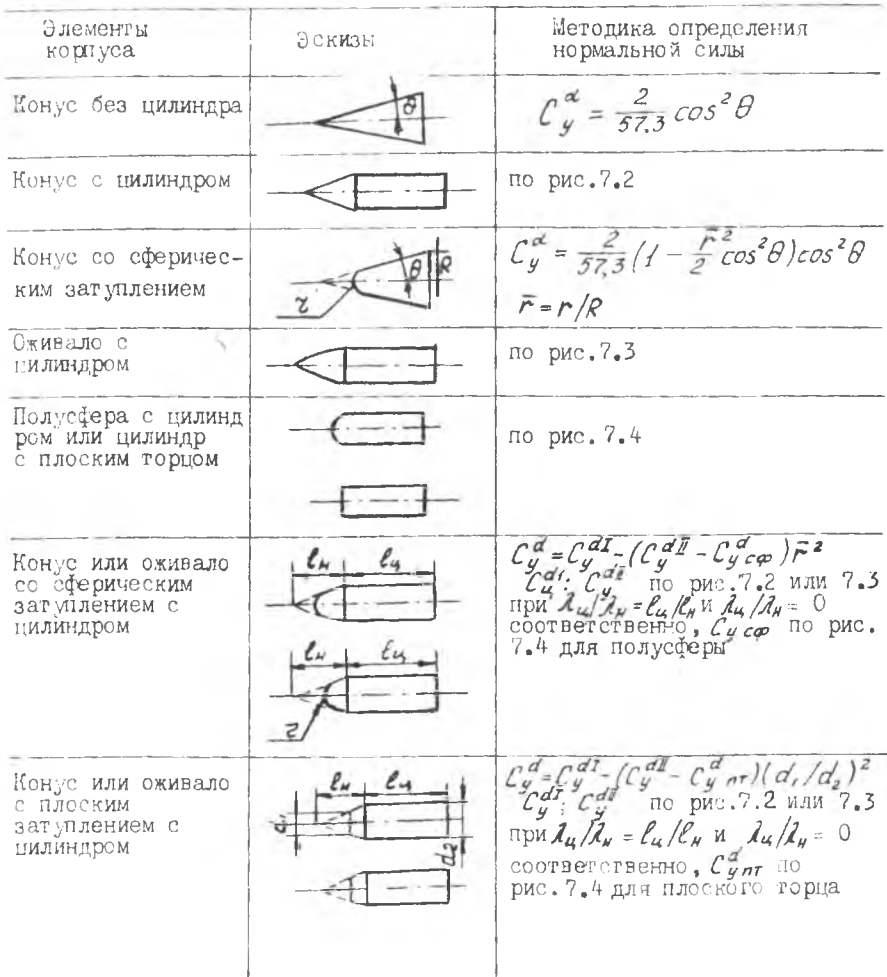 Элементы корпуса
Эскизы
Методика определения нормальной силы
Конус без цилиндра
θ
C_y^α = 2/57.3 cos²θ
Конус с цилиндром
по рис.7.2
Конус со сферичес-
ким затуплением
θ R
r
C_y^α = 2/57,3 (1 - r̄²/2 cos²θ) cos²θ
r̄ = r/R
Оживало с
цилиндром
по рис.7.3
Полусфера с цилинд
ром или цилиндр
с плоским торцом
по рис.7.4
Конус или оживало
со сферическим
затуплением с
цилиндром
lн lц
lн lц
r
C_y^α = C_y^αI - (C_y^αII - C_y сф^α) r̄²
C_ц^αI; C_y^αII по рис.7.2 или 7.3
при λц/λн = lц/lн и λц/λн = 0
соответственно, C_y сф по рис.
7.4 для полусферы
Конус или оживало
с плоским
затуплением с
цилиндром
lн lц
d₁
d₂
C_y^α = C_y^αI - (C_y^αII - C_y пт^α)(d₁/d₂)²
C_y^αI; C_y^αII по рис.7.2 или 7.3
при λц/λн = lц/lн и λц/λн = 0
соответственно, C_y пт^α по
рис.7.4 для плоского торца